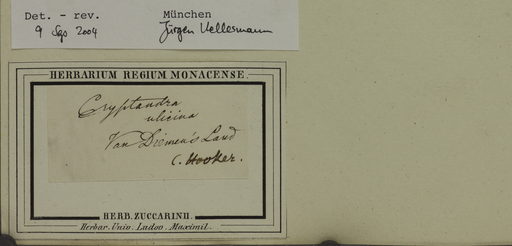 Det. - rev. München
9 Sep 2004 Jürgen Kellermann
HERBARIUM REGIUM MONACENSE.
Cryptandra
ulicina
Van Diemen's Land
C. Hooker.
HERB. ZUCCARINII.
Herbar. Univ. Ludov. Maximil.